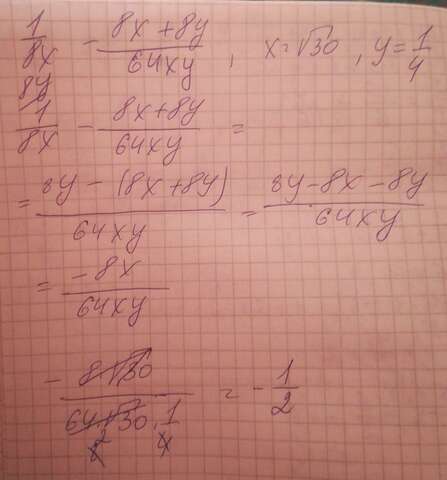 1/8x - (8x+8y)/64xy, x=√30, y=1/4
8y
1/8x - (8x+8y)/64xy =
= (8y-(8x+8y))/64xy = (8y-8x-8y)/64xy
= (-8x)/64xy
- (8√30)/(64√30·1/4) = -1/2
2